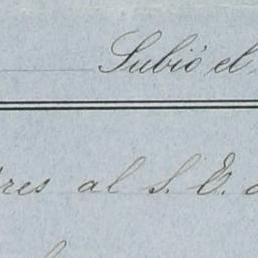 Subió el
res al S. E.